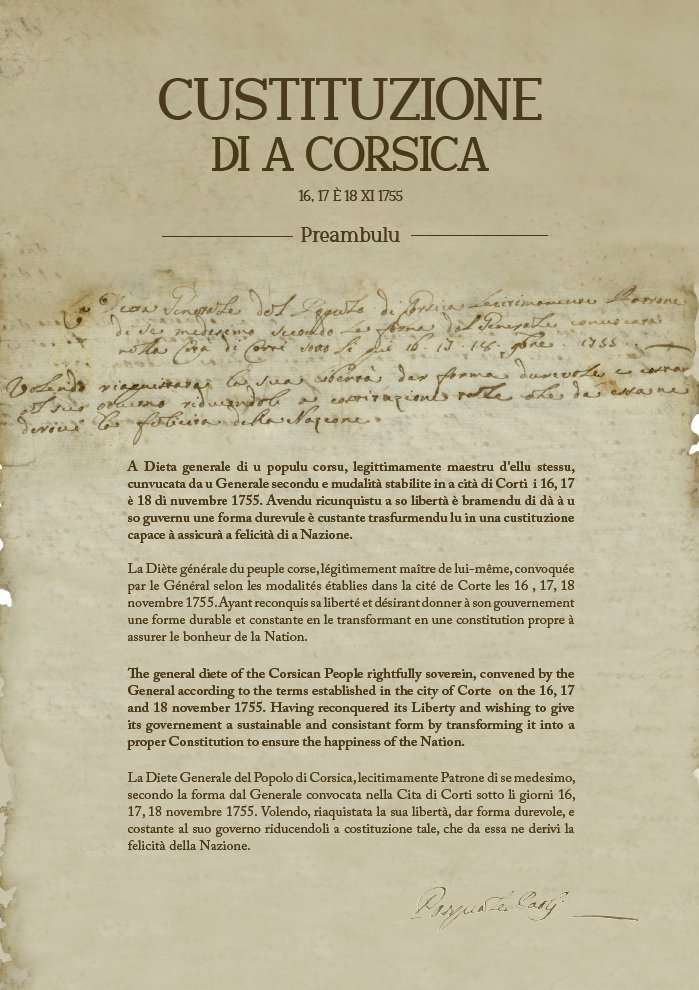 CUSTITUZIONE
DI A CORSICA
16, 17 È 18 XI 1755
Preambulu
La Dieta Generale del Popolo di Corsica lecitimamente Patrone
di se medesimo secondo la forma dal Generale convocata
nella Città di Corti sotto li 16. 17. 18. 9bre. 1755.
Volendo riaquistata la sua libertà dar forma durevole e costan
al suo governo riducendoli a costituzione tale che da essa ne
derivi la felicità della Nazione
A Dieta generale di u populu corsu, legittimamente maestru d'ellu stessu,
cunvucata da u Generale secondu e mudalità stabilite in a cità di Corti i 16, 17
è 18 di nuvembre 1755. Avendu ricunquistu a so libertà è bramendu di dà à u
so guvernu une forma durevule è custante trasfurmendu lu in una custituzione
capace à assicurà a felicità di a Nazione.
La Diète générale du peuple corse, légitimement maître de lui-même, convoquée
par le Général selon les modalités établies dans la cité de Corte les 16 , 17, 18
novembre 1755. Ayant reconquis sa liberté et désirant donner à son gouvernement
une forme durable et constante en le transformant en une constitution propre à
assurer le bonheur de la Nation.
The general diete of the Corsican People rightfully soverein, convened by the
General according to the terms established in the city of Corte on the 16, 17
and 18 november 1755. Having reconquered its Liberty and wishing to give
its governement a sustainable and consistant form by transforming it into a
proper Constitution to ensure the happiness of the Nation.
La Diete Generale del Popolo di Corsica, lecitimamente Patrone di se medesimo,
secondo la forma dal Generale convocata nella Cita di Corti sotto li giorni 16,
17, 18 novembre 1755. Volendo, riaquistata la sua libertà, dar forma durevole, e
costante al suo governo riducendoli a costituzione tale, che da essa ne derivi la
felicità della Nazione.
Pasquale Paoli